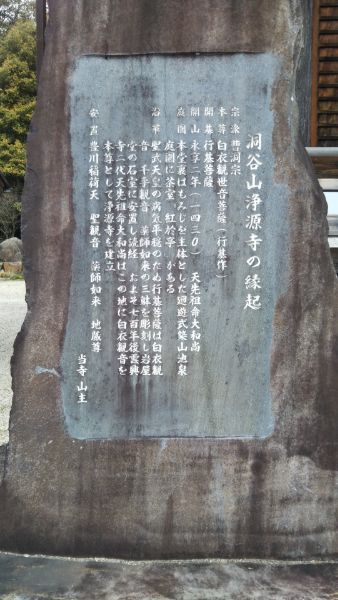 洞谷山浄源寺の縁起
宗派 曹洞宗
本尊 白衣観世音菩薩（行基作）
開基 行基菩薩
開山 永享二年（一四三〇） 天先祖命大和尚
庭園 本堂裏はもみじを主体とした廻遊式築山池泉
庭園に茶室「紅於亭」がある
沿革 聖武天皇の病気平穏のため行基菩薩は白衣観
音 千手観音 薬師如来の三躰を彫刻し岩屋
堂の石室に安置し読経 およそ七百年後雲興
寺二代天先祖命大和尚はこの地に白衣観音を
本尊として浄源寺を建立
安置 豊川稲荷天 聖観音 薬師如来 地蔵尊
当寺 山主